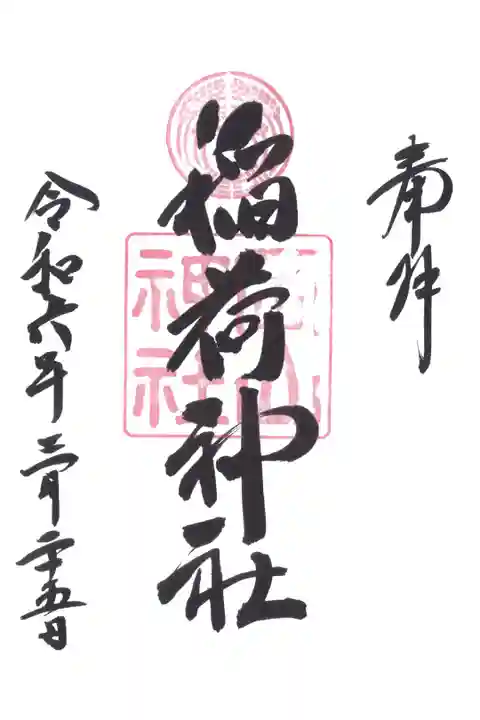 奉拝
稲荷神社
神社
令和六年三月二十五日